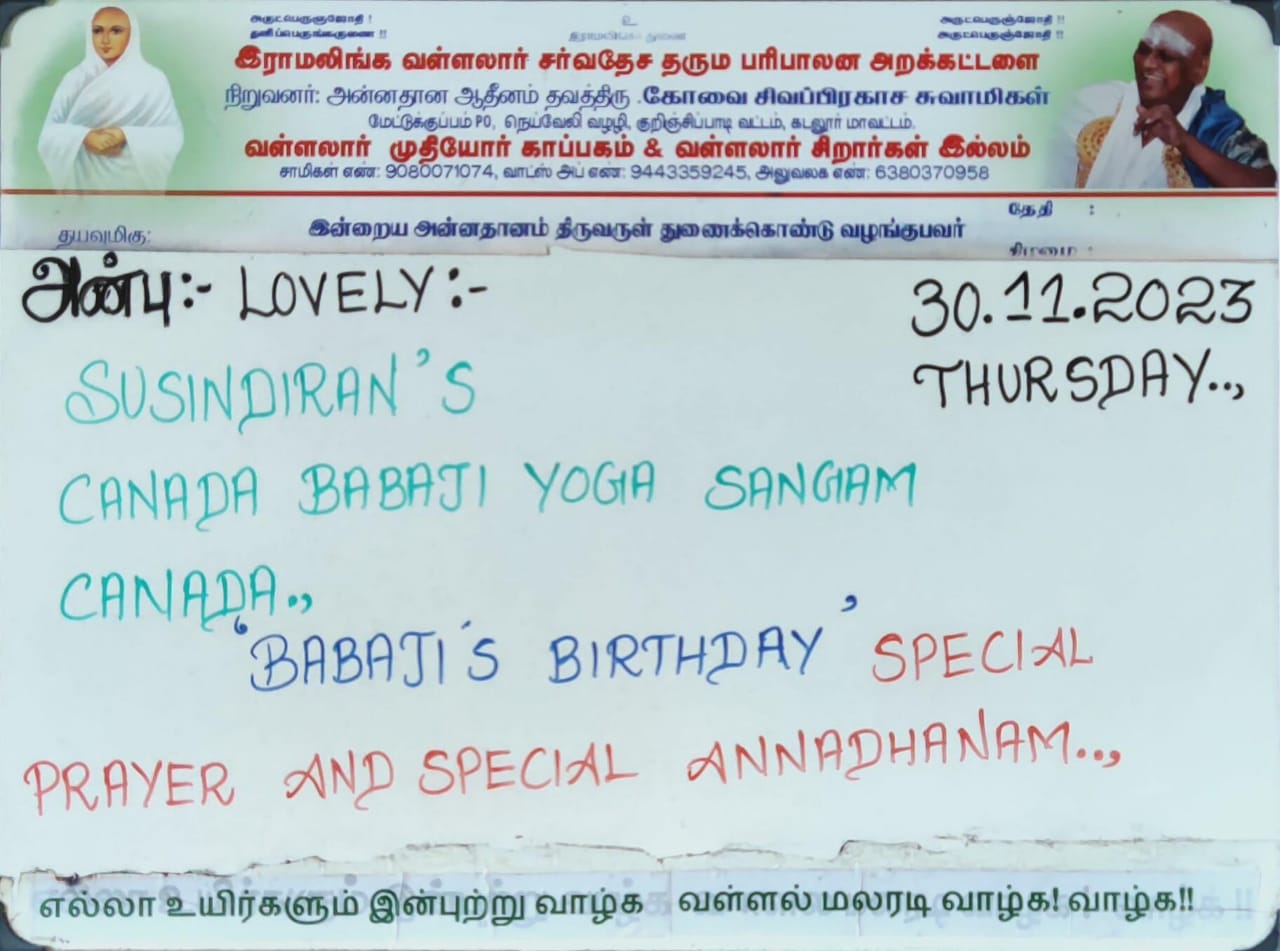 அருட்பெருஞ்ஜோதி !
தனிப்பெருங்கருணை !!
உ
இராமலிங்கம் துணை
அருட்பெருஞ்ஜோதி !!
அருட்பெருஞ்ஜோதி !!
இராமலிங்க வள்ளலார் சர்வதேச தரும பரிபாலன அறக்கட்டளை
நிறுவனர்: அன்னதான ஆதீனம் தவத்திரு .கோவை சிவப்பிரகாச சுவாமிகள்
மேட்டுக்குப்பம் PO, நெய்வேலி வழழி, குறிஞ்சிப்பாடி வட்டம், கடலூர் மாவட்டம்.
வள்ளலார் முதியோர் காப்பகம் & வள்ளலார் சிறார்கள் இல்லம்
சாமிகள் எண்: 9080071074, வாட்ஸ் அப் எண்: 9443359245, அலுவலக எண்: 6380370958
தயவுமிகு: இன்றைய அன்னதானம் திருவருள் துணைக்கொண்டு வழங்குபவர் தேதி :
கிழமை :
அன்பு:- LOVELY:- 30.11.2023
THURSDAY..,
SUSINDIRAN'S
CANADA BABAJI YOGA SANGAM
CANADA.,
'BABAJI'S BIRTHDAY' SPECIAL
PRAYER AND SPECIAL ANNADHANAM..,
எல்லா உயிர்களும் இன்புற்று வாழ்க வள்ளல் மலரடி வாழ்க! வாழ்க!!